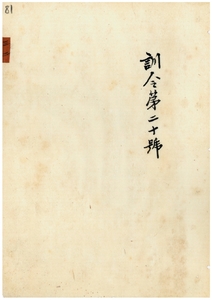 81
訓令第二十號